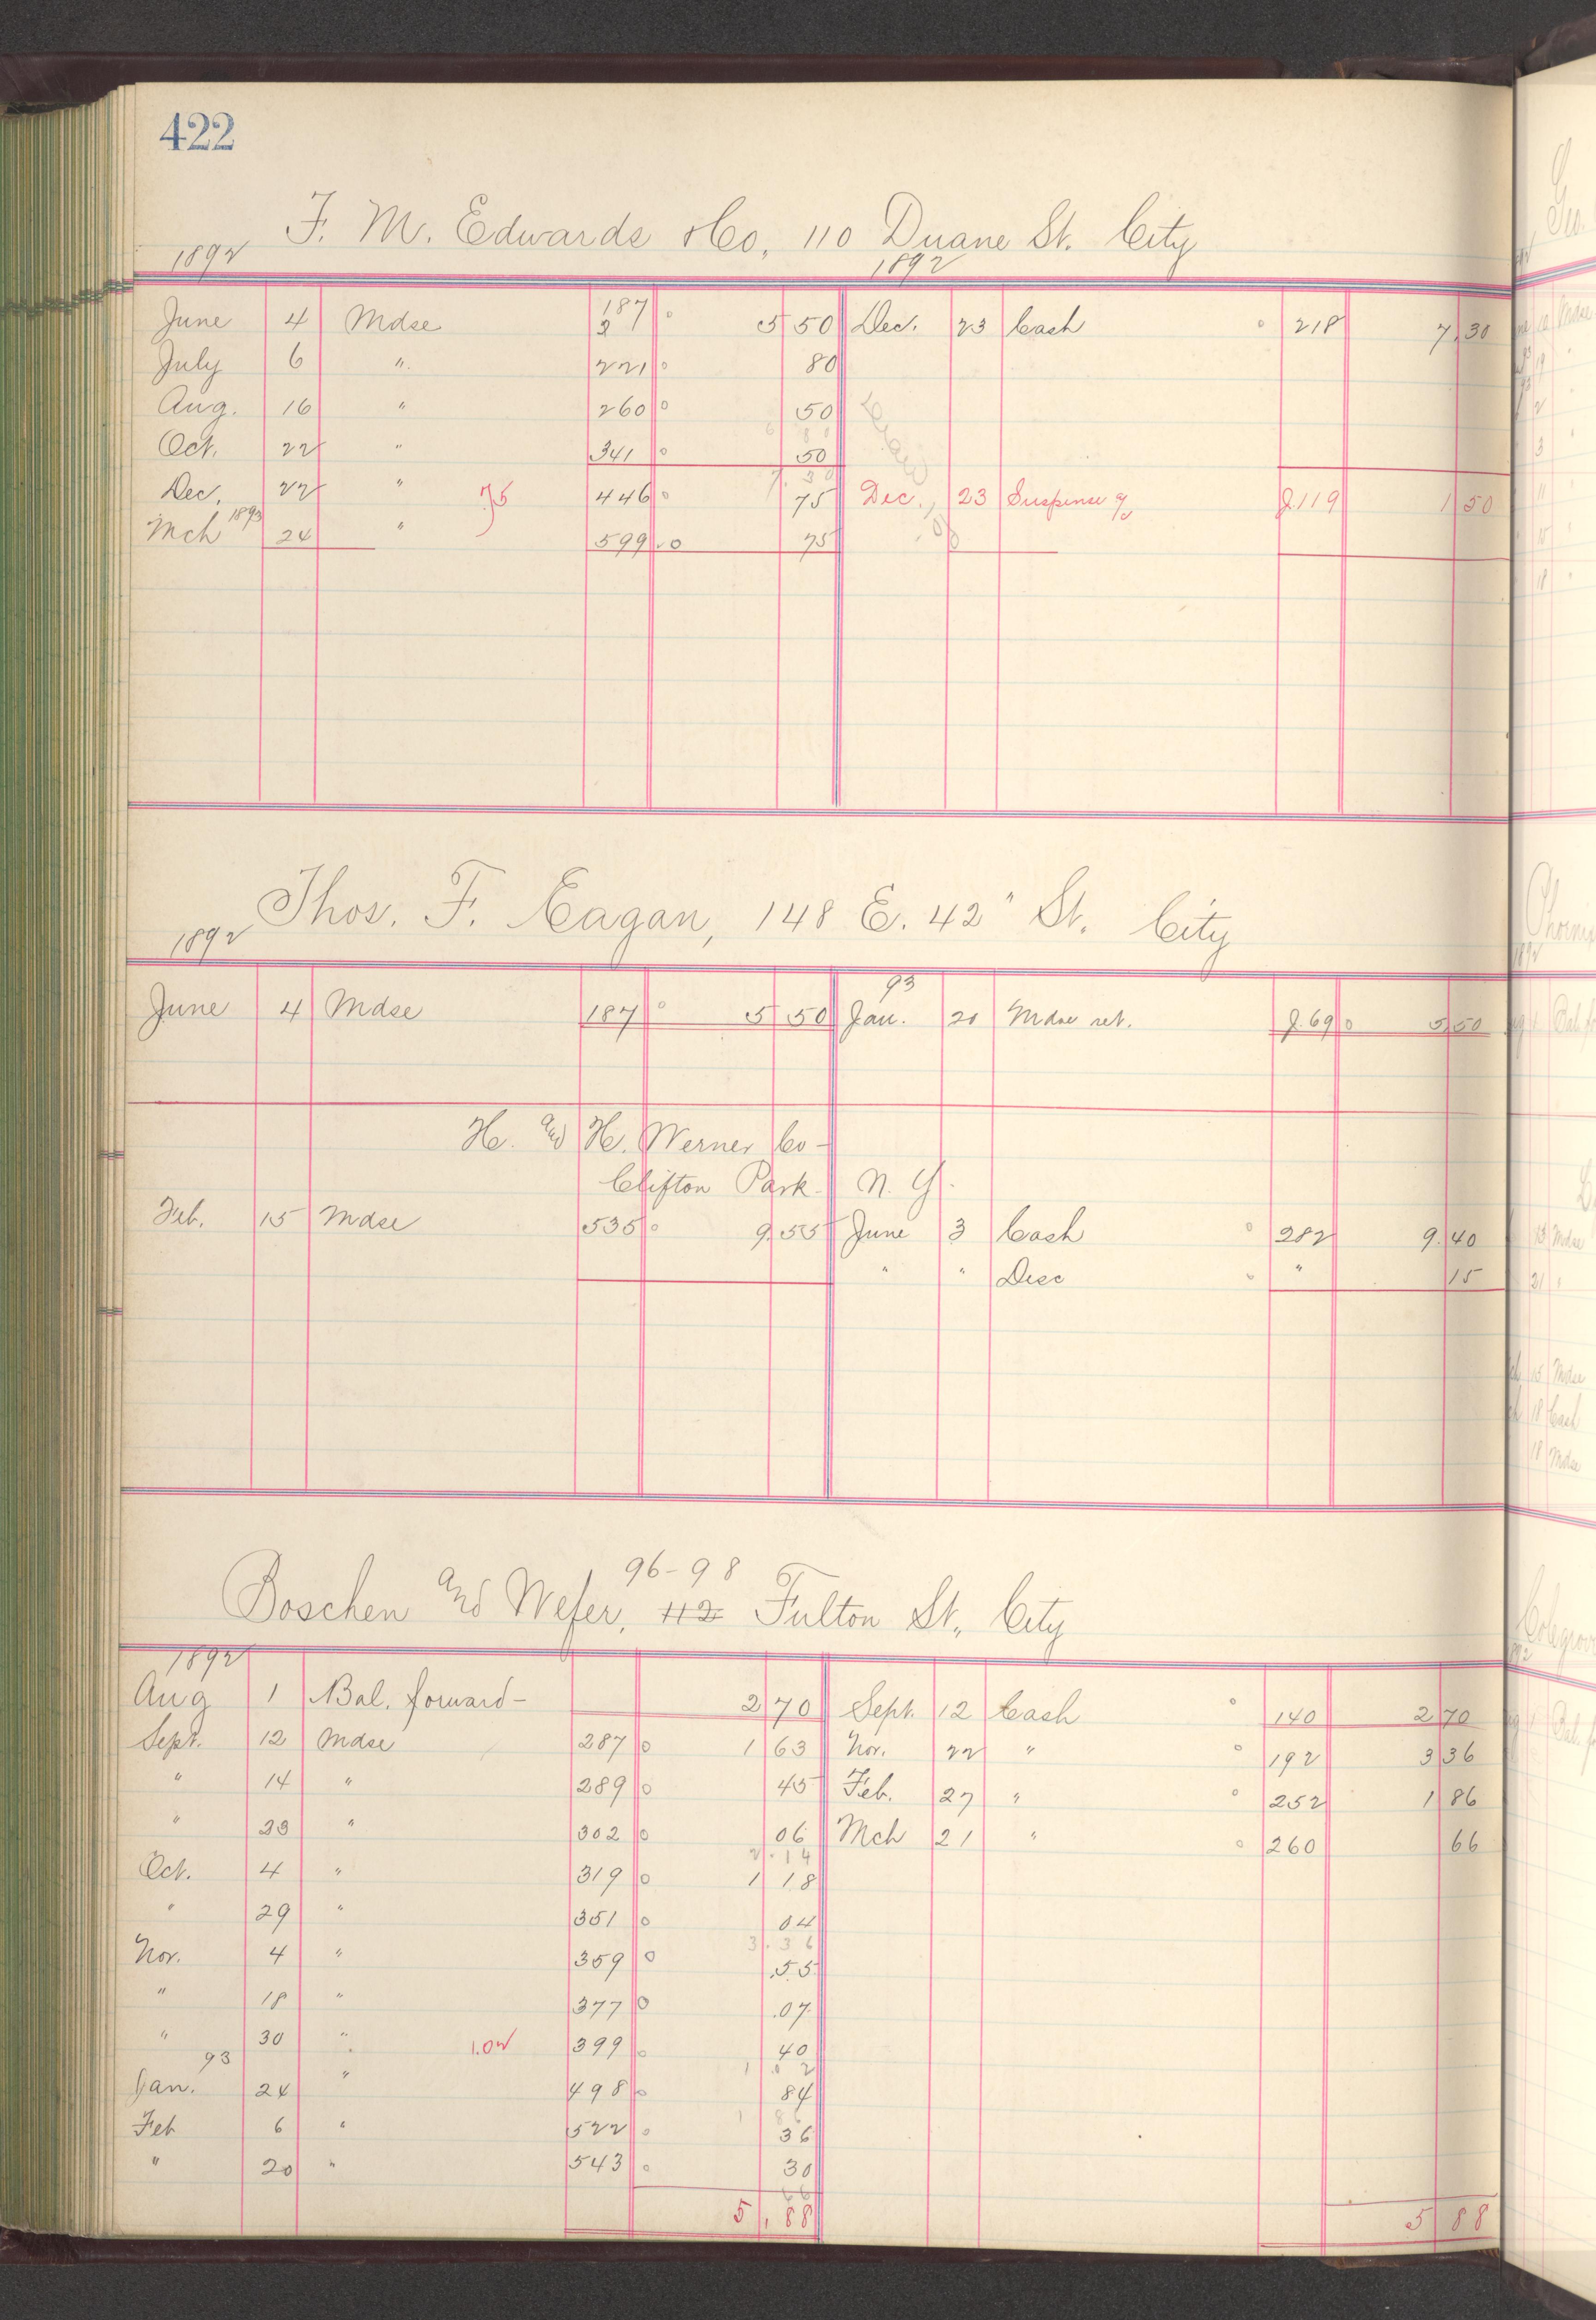 422
F. M. Edwards & Co, 110 Duane St. City
1892 1892
June 4 Mdse 187 0 5 50 Dec. 23 Cash 0 218 7.30
July 6 " 221 0 80
Aug. 16 " 260 0 50
6 80
Oct. 22 " 341 0 50
7.30
Dec. 22 " .75 446 0 75 Dec., 23 Suspense a/c J.119 1 50
Mch 1893 24 " 599 .0 75
Thos. F. Eagan, 148 E. 42" St. City
1892
93
June 4 Mdse 187 0 5 50 Jan. 20 Mdse ret. J.69 0 5 50
H. and H. Werner Co -
Clifton Park N. Y.
Feb. 15 Mdse 535 0 9.55 June 3 Cash 0 282 9.40
" " Disc 0 " 15
96-98
Boschen and Wefer, 112 Fulton St., City
1892
Aug 1 Bal. forward - 2 70 Sept. 12 Cash 0 140 2 70
Sept. 12 Mdse 287 0 1 63 Nov. 22 " 0 192 3 36
" 14 " 289 0 45 Feb. 27 " 0 252 1 86
" 23 " 302 0 06 Mch 21 " 0 260 66
2.14
Oct. 4 " 319 0 1 18
" 29 " 351 0 04
3.36
Nov. 4 " 359 0 .55
" 18 " 377 0 .07
" 30 " 1.02 399 0 40
1 02
93
Jan. 24 " 498 0 84
1 86
Feb 6 " 522 0 36
" 20 " 543 0 30
66
5.88 5 88